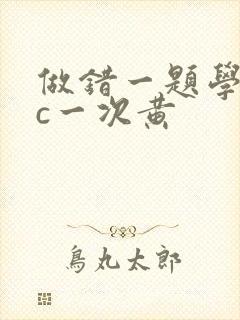 做錯一題學
c一次黃
鳥丸太郎